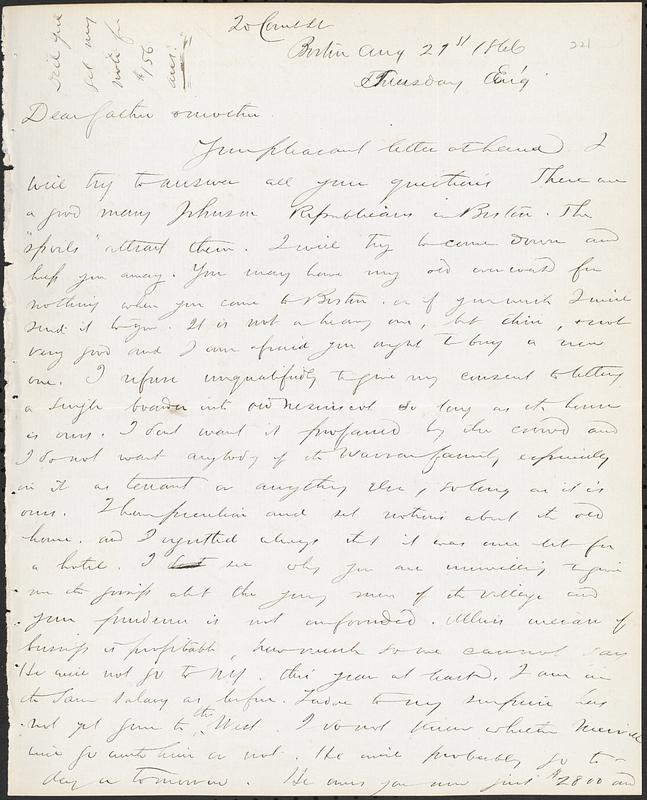 Did you
get my
note for
$156
20 Court St
Boston Aug 21st 1866
221
Thursday Ev'g
Dear father & mother.
Your pleasant letter at hand I
will try to answer all your questions There are
a good many Johnson Republicans in Boston. The
"spoils" attract them. I will try to come down and
help you away. You may have my old overcoat for
nothing when you come to Boston. or if you wish I will
send it to you. It is not a heavy one, but thin, & not
very good and I am afraid you ought to buy a new
one. I refuse unqualifiedly to give my consent to letting
a single boarder into old so long as the house
is ours. I don't want it profaned by the crowd and
I do not want anybody of the Warren family especially
in it as tenant or anything else, so long as it is
ours. I have peculiar and set notions about the old
home. and I regretted always that it was ever let for
a hotel. I see why you are unwilling to give
me the gossip abt the young men of the village and
your prudence is not unfounded. business is profitable, how much so we cannot say
He will not go to NY. this year at least. I am on
the same salary as before. to my surprise has
not yet gone to the West. I do not know whether
will go with him or not. He will probably go to-
day or tomorrow. He owes you now just $2800 and